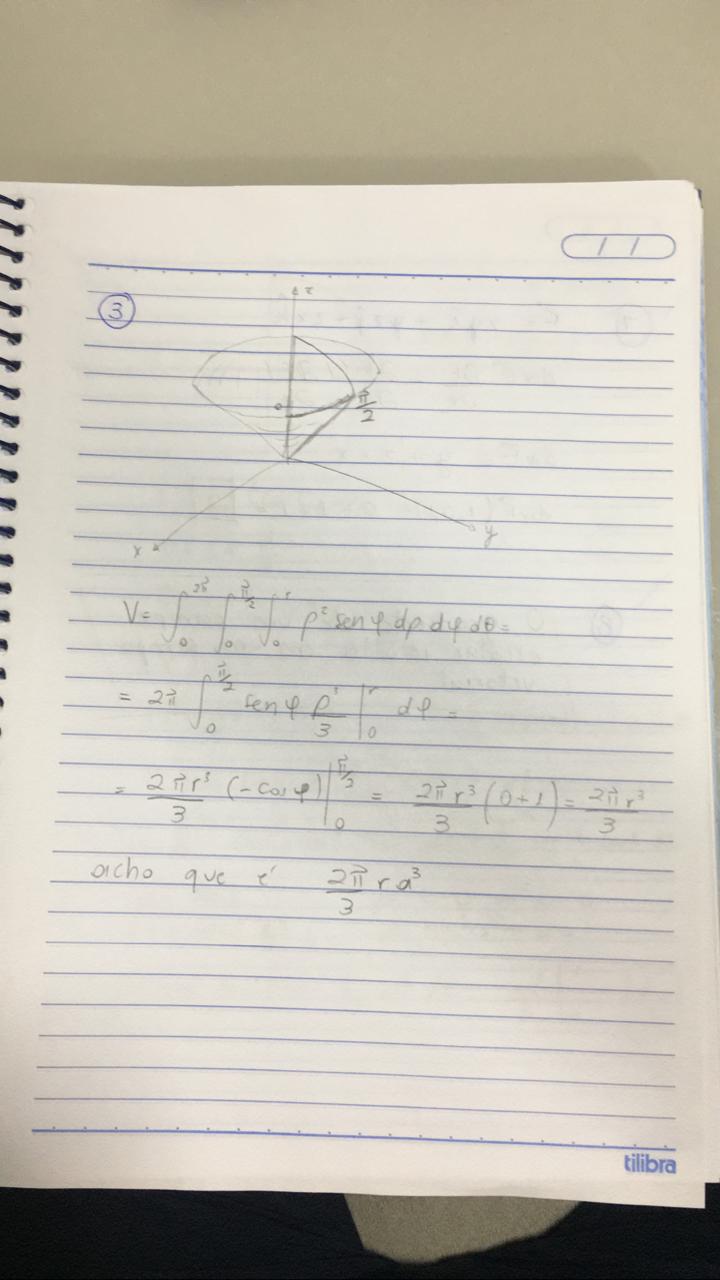 / /
3
z
0
π/2
x
y
V = ∫₀^{2π} ∫₀^{π/2} ∫₀^r ρ² sen φ dρ dφ dθ =
= 2π ∫₀^{π/2} sen φ ρ³/3 |₀^r dφ =
= 2πr³/3 (-cos φ) |₀^{π/2} = 2πr³/3 (0+1) = 2πr³/3
acho que é 2π/3 ra³
tilibra